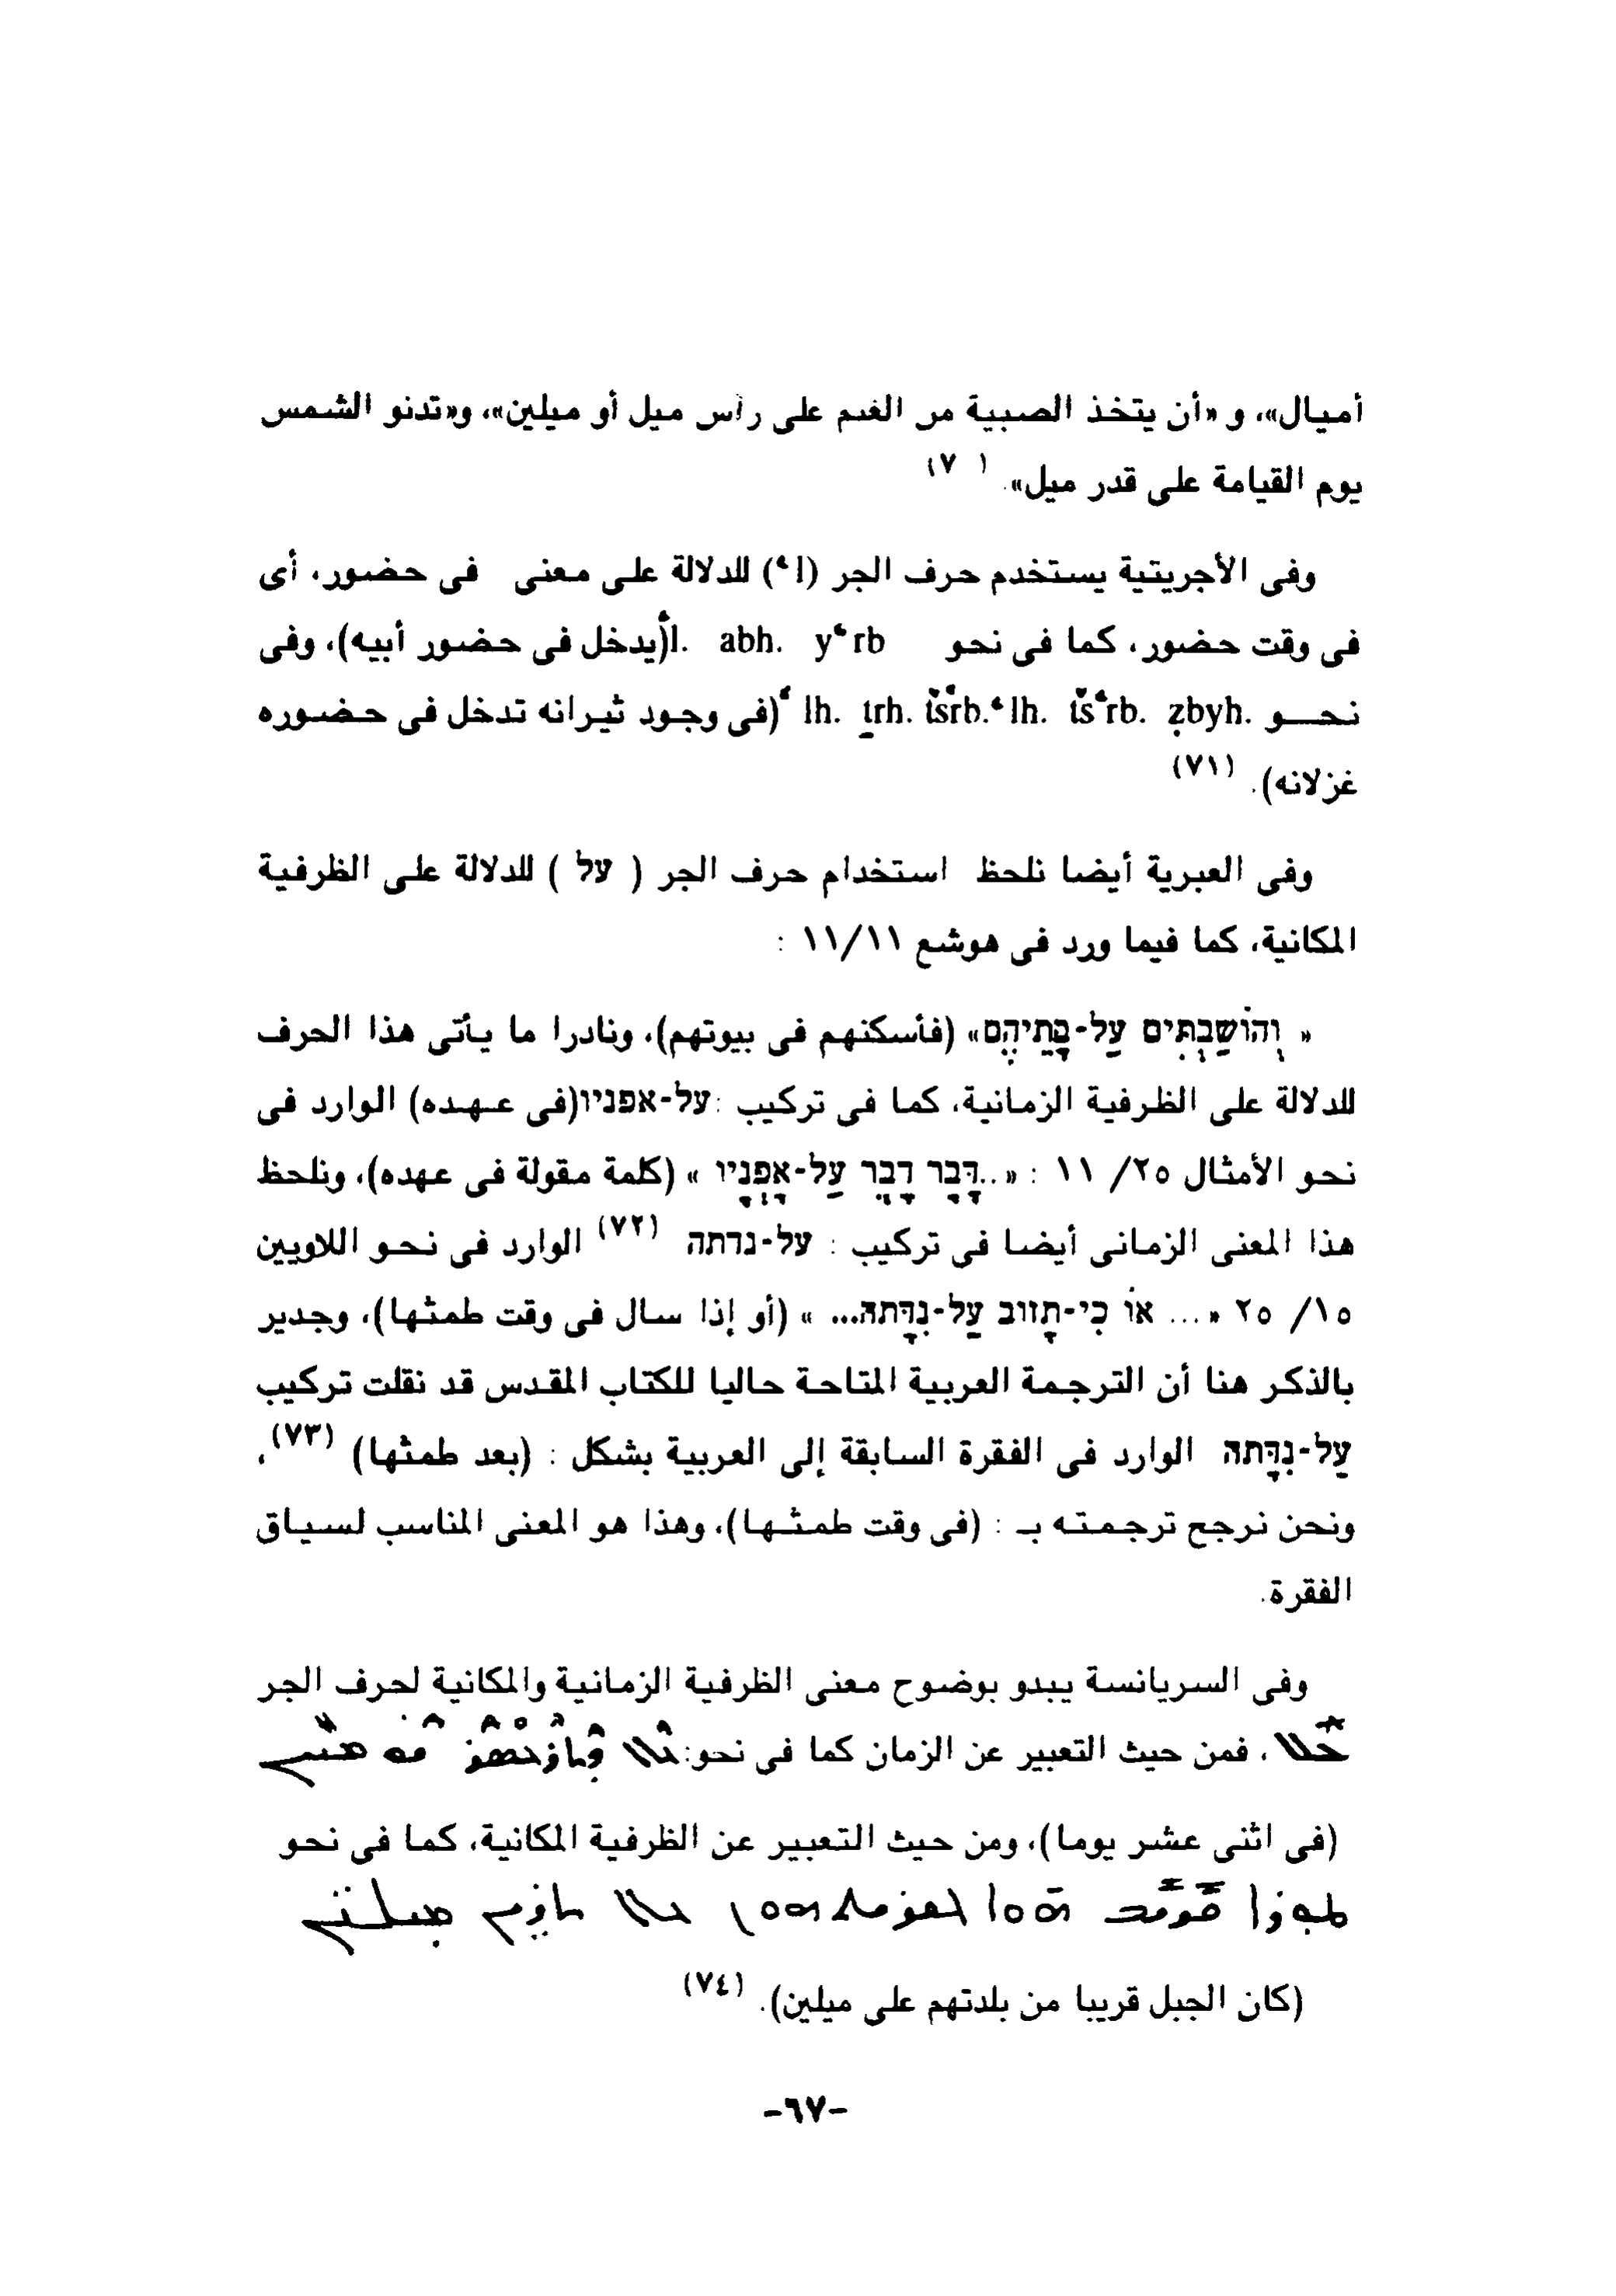 أميال»، و «أن يتخذ الصبية من الغنم على رأس ميل أو ميلين»، و«تدنو الشمس
يوم القيامة على قدر ميل». (٧ )
وفى الأجريتية يستخدم حرف الجر (ʿl) للدلالة على معنى فى حضور، أى
فى وقت حضور، كما فى نحو yʿrb .abh .ʿl (يدخل فى حضور أبيه)، وفى
نحو .lh. ṯrh. tšʿrb. ʿlh. tšʿrb. ẓbyhʿ (فى وجود ثيرانه تدخل فى حضوره
غزلانه). (٧١)
وفى العبرية أيضا نلحظ استخدام حرف الجر ( על ) للدلالة على الظرفية
المكانية، كما فيما ورد فى هوشع ١١/١١ :
« וְהוֹשַׁבְתִּים עַל-בָּתֵּיהֶם» (فأسكنهم فى بيوتهم)، ونادرا ما يأتى هذا الحرف
للدلالة على الظرفية الزمانية، كما فى تركيب :על-אפניו(فى عهده) الوارد فى
نحو الأمثال ٢٥/ ١١ : «..דָּבָר דָּבֻר עַל-אָפְנָיו » (كلمة مقولة فى عهده)، ونلحظ
هذا المعنى الزمانى أيضا فى تركيب : על-נדתה (٧٢) الوارد فى نحو اللاويين
١٥/ ٢٥ «... אוֹ כִי-תָזוּב עַל-נִדָּתהּ... » (أو إذا سال فى وقت طمثها)، وجدير
بالذكر هنا أن الترجمة العربية المتاحة حاليا للكتاب المقدس قد نقلت تركيب
עַל-נִדָּתהּ الوارد فى الفقرة السابقة إلى العربية بشكل : (بعد طمثها) (٧٣)،
ونحن نرجح ترجمته بـ : (فى وقت طمثها)، وهذا هو المعنى المناسب لسياق
الفقرة.
وفى السريانسة يبدو بوضوح معنى الظرفية الزمانية والمكانية لحرف الجر
ܥܠ ، فمن حيث التعبير عن الزمان كما فى نحو: ܥܠ ܕܬܪܥܣܪ
(فى اثنى عشر يوما)، ومن حيث التعبير عن الظرفية المكانية، كما فى نحو
ܛܘܪܐ ܩܪܝܒ ܗܘܐ ܠܩܪܝܬܗܘܢ ܥܠ ܬܪܝܢ ܡܝܠܝܢ
(كان الجبل قريبا من بلدتهم على ميلين). (٧٤)
-٦٧-